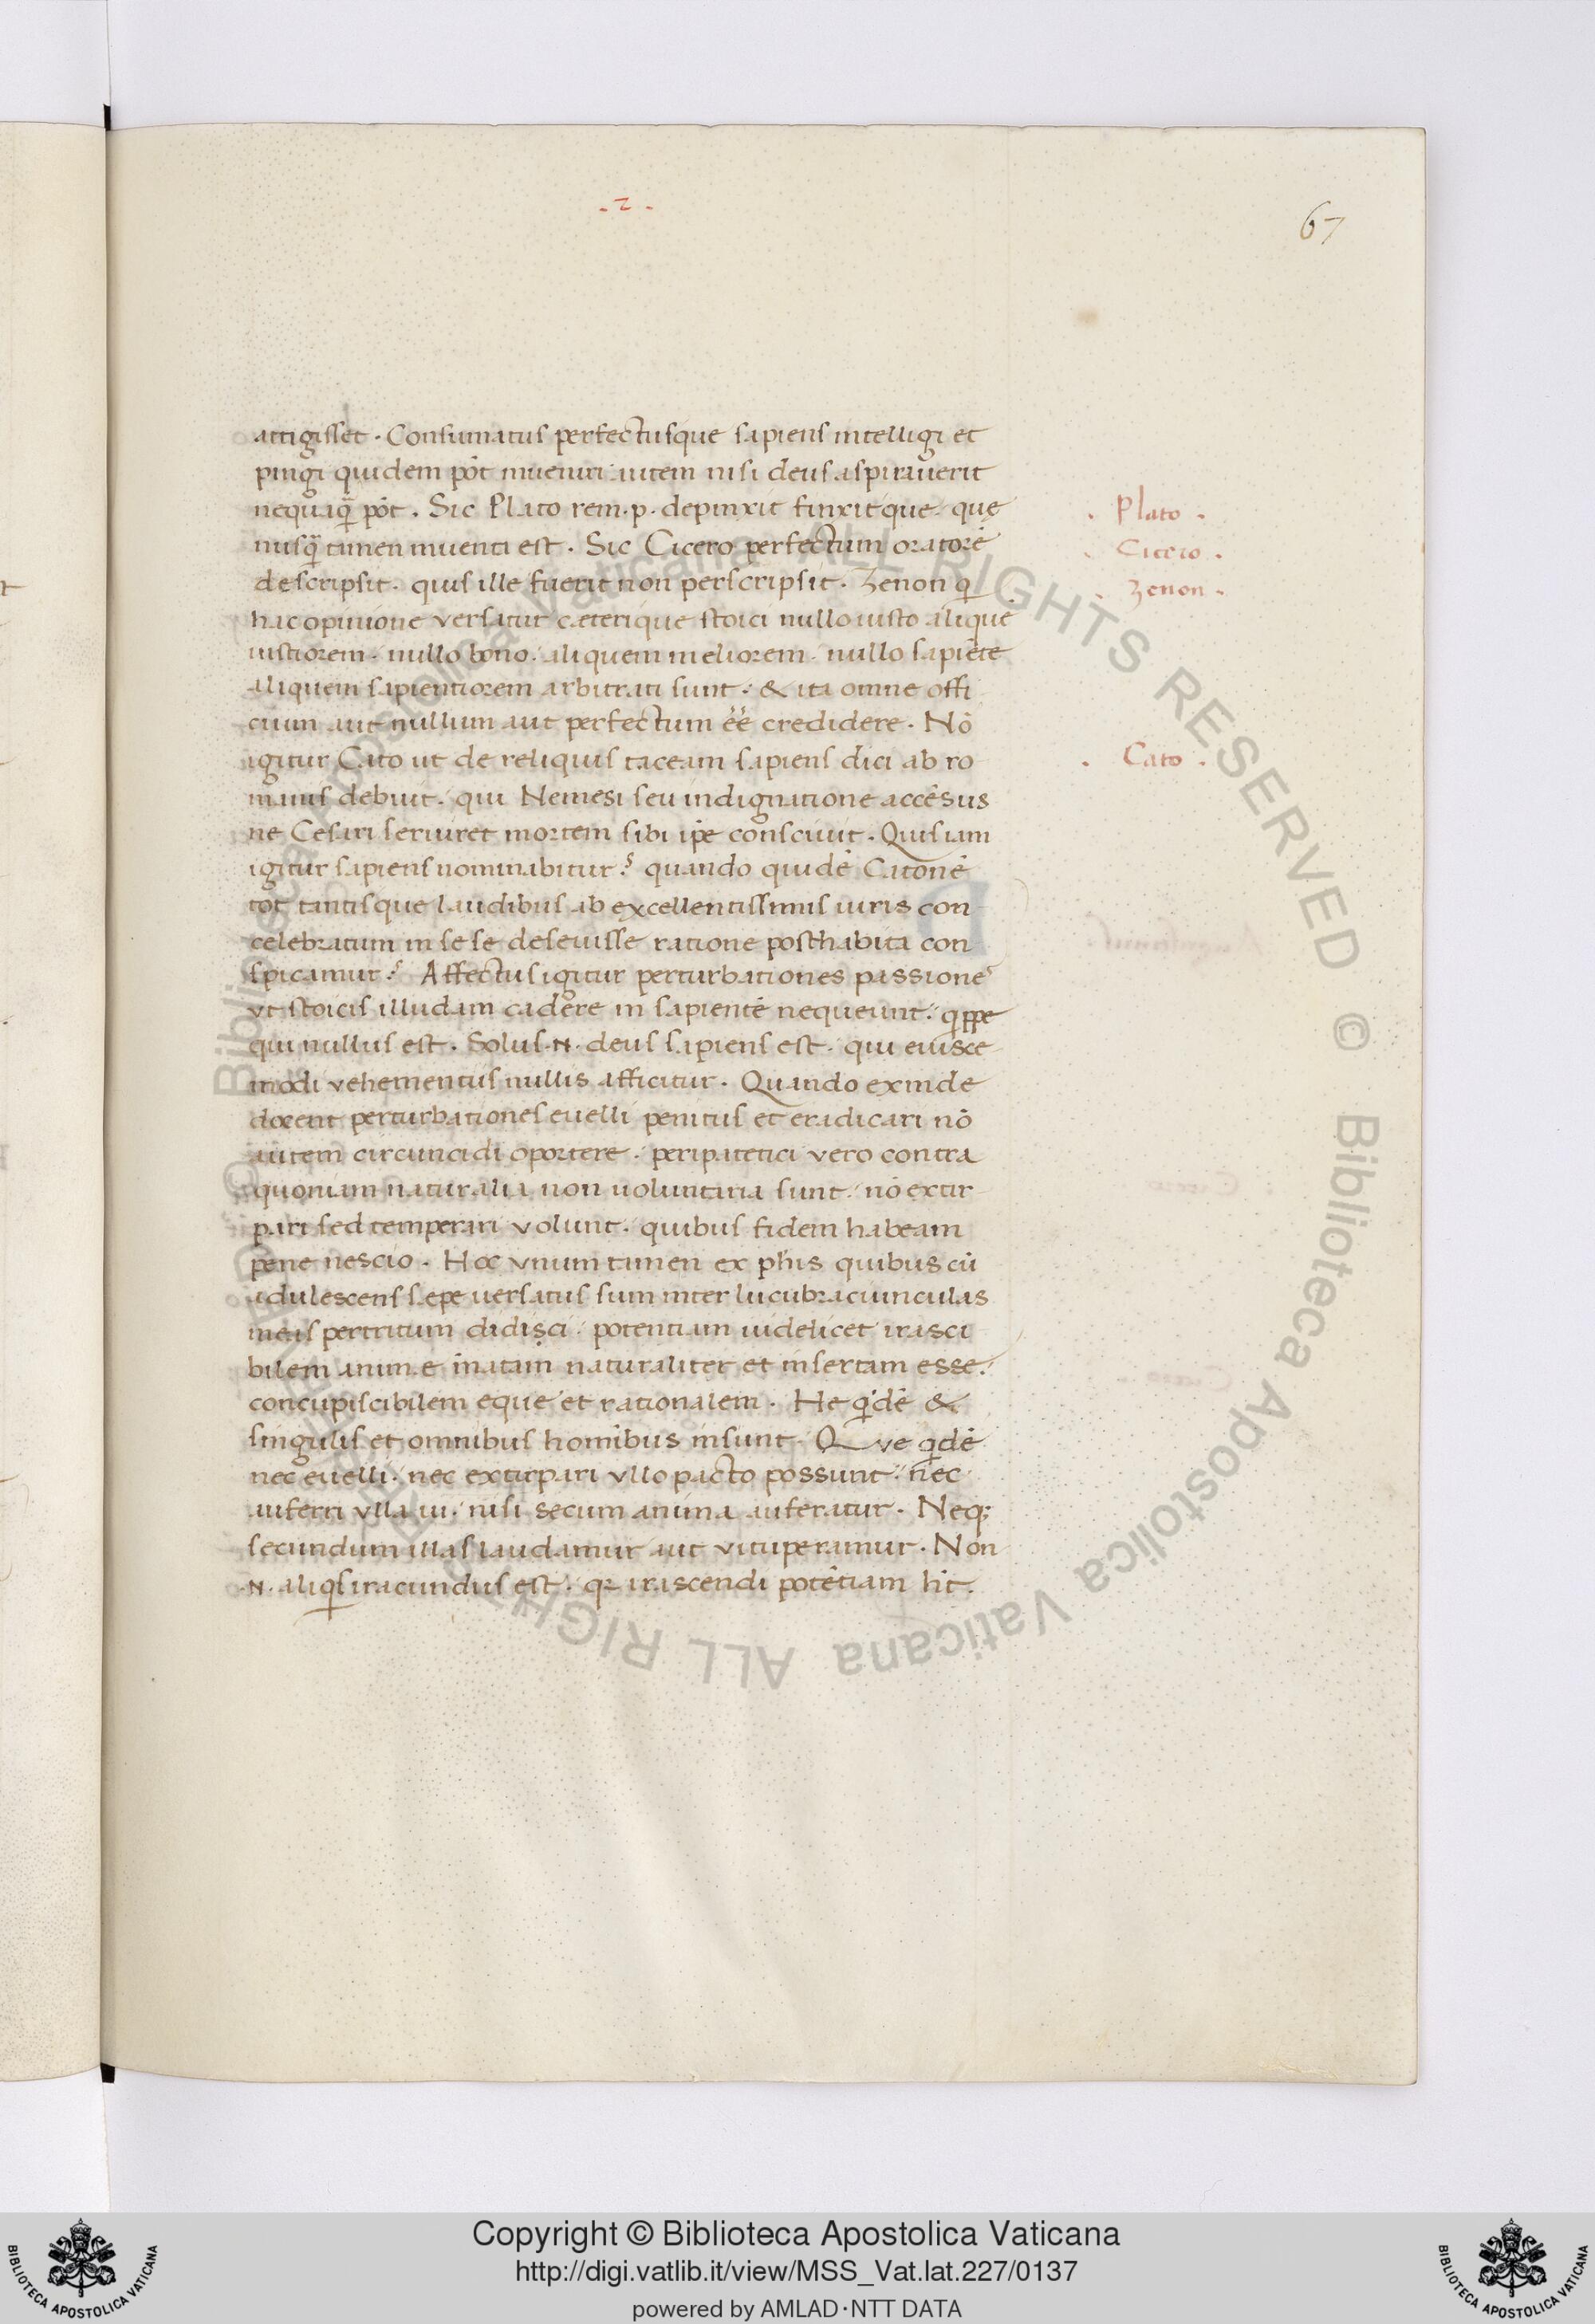 . 2 .
67
attigisset . Consumatus perfectusque sapiens intelligi et
pingi quidem pōt inueniri autem nisi deus aspirauerit
nequaq̄ pōt . Sic Plato rem . p . depinxit finxitque . quę
nusq̄ tamen inuenta est . Sic Cicero perfectum oratorē
descripsit . quis ille fuerit non perscripsit . Zenon q
hac opinione versatur cæterique stoici nullo iusto aliquē
iustiorem . nullo bono . aliquem meliorem . nullo sapiēte
aliquem sapientiorem arbitrati sunt . & ita omne offi
cium aut nullum aut perfectum ēē credidere . Nō
igitur Cato ut de reliquis taceam sapiens dici ab ro
manis debuit . qui Nemesi seu indignatione accēsus
ne Cesari seruiret mortem sibi ip̄e consciuit . Quis iam
igitur sapiens nominabitur ? quando quidē Catonē
tot tantisque laudibus ab excellentissimis uiris con
celebratum in se se deseuisse ratione posthabita con
spicamur ? Affectus igitur perturbationes passiones
vt stoicis illudam cadere in sapientē nequeunt . qppe
qui nullus est . Solus . N . deus sapiens est . qui eiusce
modi vehementiis nullis afficitur . Quando exinde
docent perturbationes euelli penitus et eradicari nō
autem circuncidi oportere . peripatetici vero contra
quoniam naturalia non uoluntaria sunt . nō extir
pari sed temperari volunt . quibus fidem habeam
pene nescio . Hoc vnum tamen ex phis quibus cū
adulescens sepe uersatus sum inter lucubraciunculas
meas pertritum didisci . potentiam uidelicet irasci
bilem anime inatam naturaliter et insertam esse .
concupiscibilem eque et rationalem . He qdē &
singulis et omnibus homībus insunt . Que qdē
nec euelli . nec extirpari vllo pacto possunt . nec
auferri vlla ui . nisi secum anima auferatur . Neq;
secundum illas laudamur aut vituperamur . Non
. N . aliqs iracundus est . qz irascendi potētiam hīt .
. Plato .
. Cicero .
. Zenon .
. Cato .
Copyright © Biblioteca Apostolica Vaticana
http://digi.vatlib.it/view/MSS_Vat.lat.227/0137
powered by AMLAD·NTT DATA
BIBLIOTECA APOSTOLICA VATICANA
BIBLIOTECA APOSTOLICA VATICANA
Biblioteca Apostolica Vaticana ALL RIGHTS RESERVED © Biblioteca Apostolica Vaticana ALL RIGHTS RESERVED ©